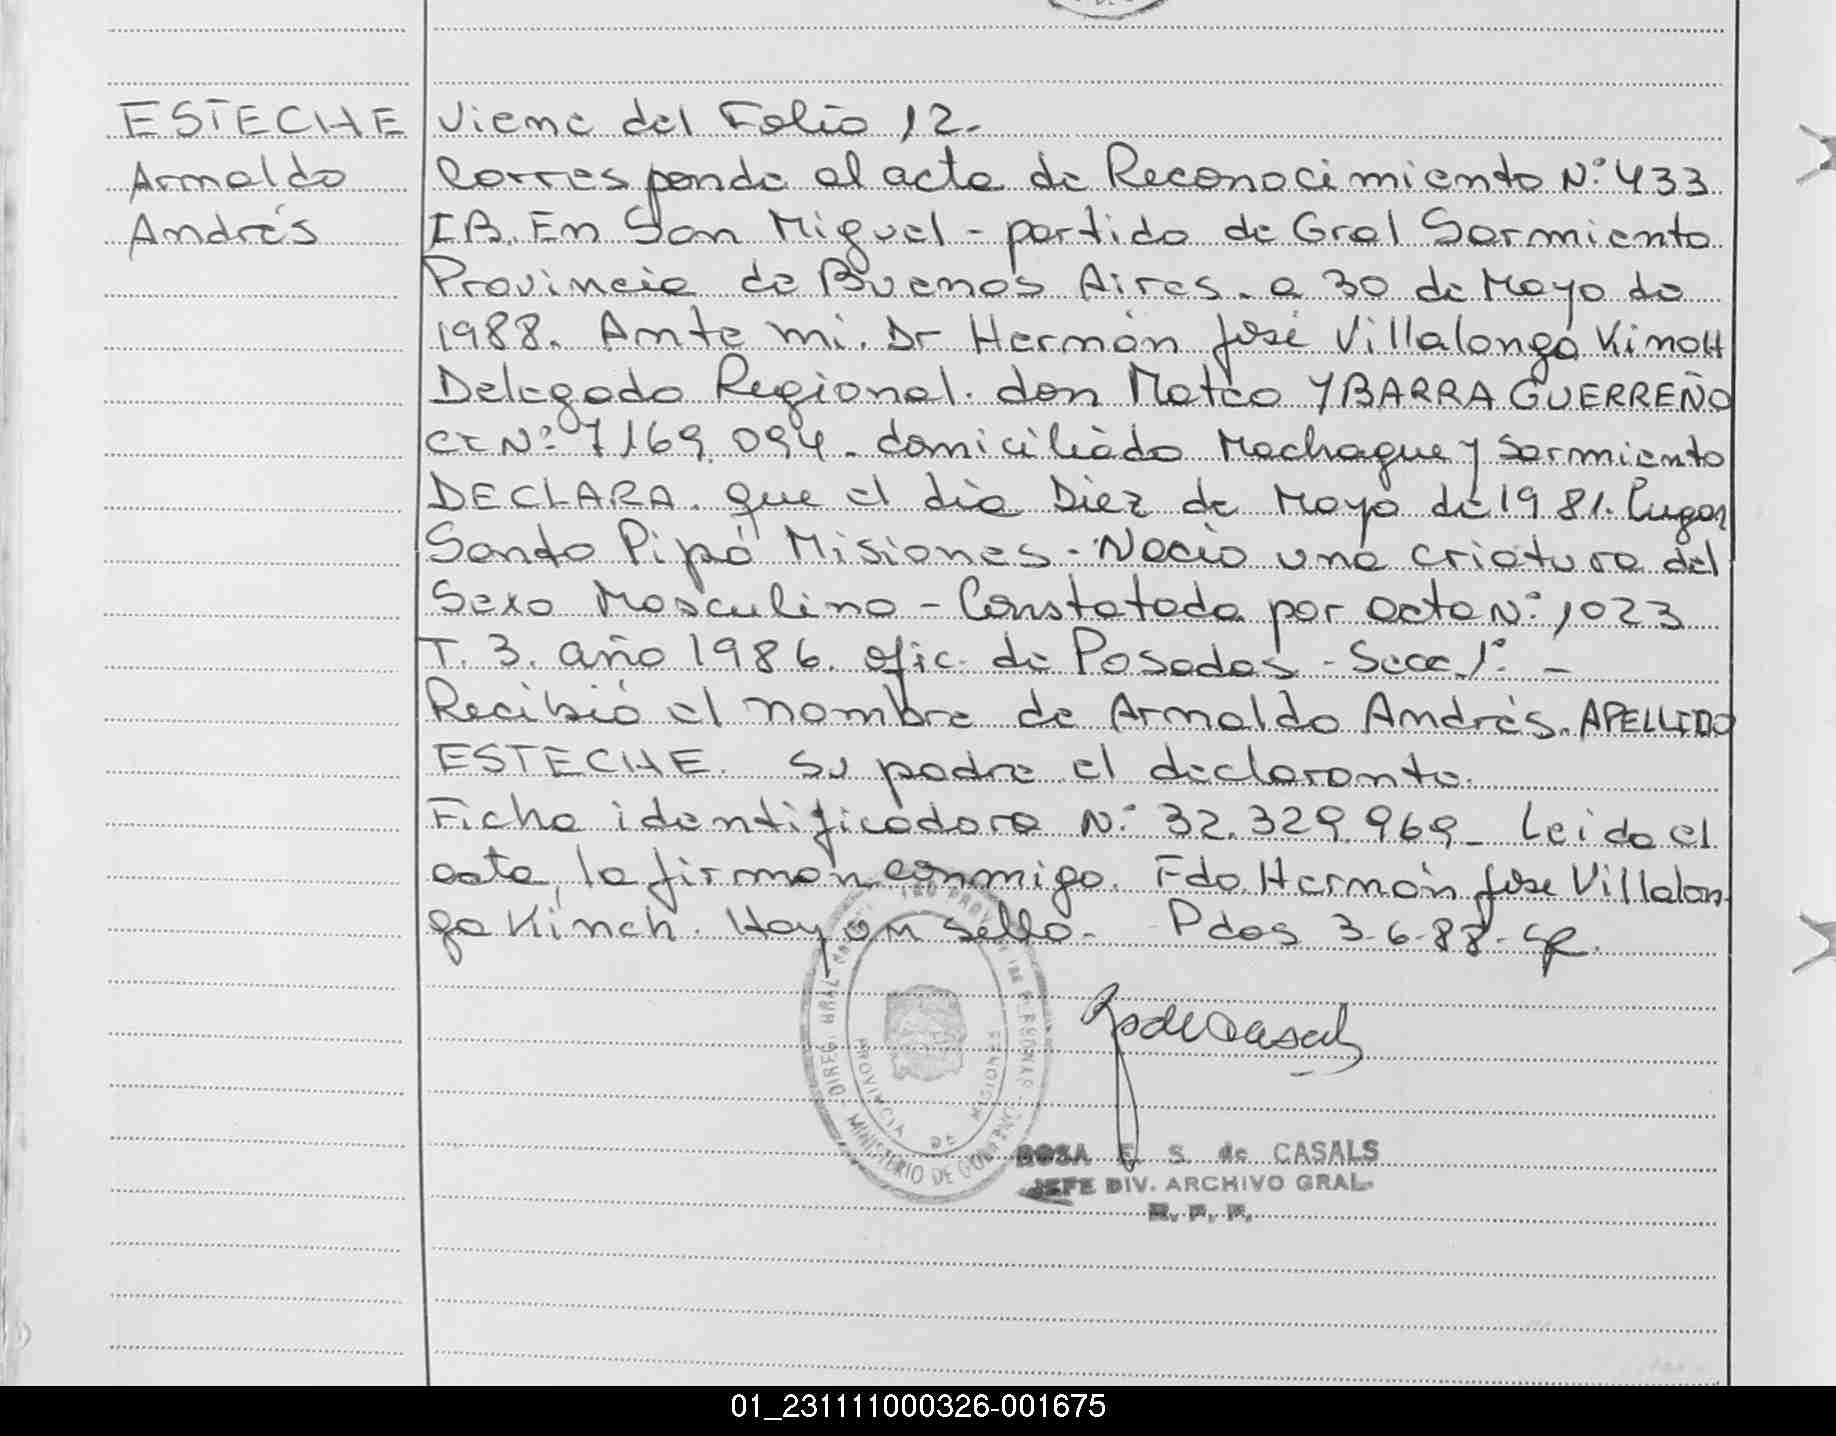 ESTECHE
Arnaldo
Andrés
Viene del Folio 12.
Corresponde al acta de Reconocimiento N° 433
IB. En San Miguel - partido de Gral Sarmiento
Provincia de Buenos Aires. a 30 de Mayo de
1988. Ante mi. Dr Hernán José Villalonga Kinch
Delegado Regional. don Mateo YBARRA GUERREÑO
CI N° 7169.094. domiciliado Machague y Sarmiento
DECLARA. que el dia Diez de Mayo de 1981. lugar
Santo Pipó Misiones - Nacio una criatura del
Sexo Masculino - Constatada por acta N° 1023
T. 3. año 1986. Ofic. de Posadas - Secc 1° -
Recibió el nombre de Arnaldo Andrés. APELLIDO
ESTECHE. Su padre el declarante.
Ficha identificadora N° 32.329.969 - Leida el
acta, la firman conmigo. Fdo. Hernán José Villalon-
ga Kinch. Hay un sello. Pdas 3-6-88-
DIREC. GRAL. PROV. DE
MINISTERIO DE
PROVINCIA DE MISIONES
ROSA E. S. de CASALS
JEFE DIV. ARCHIVO GRAL.
R. P. P.
01_231111000326-001675